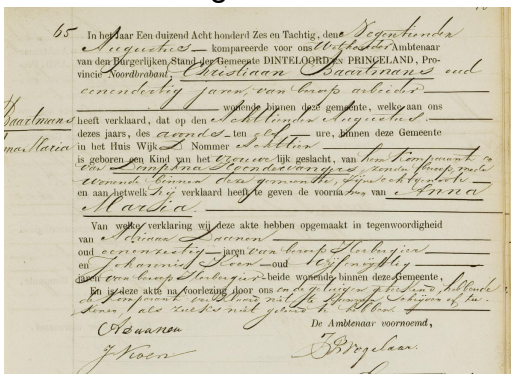 65
In het Jaar Een duizend Acht honderd Zes en Tachtig, den Negentienden
Augustus kompareerde voor ons Wethouder Ambtenaar
van den Burgerlijken Stand der Gemeente DINTELOORD EN PRINCELAND, Pro-
vincie Noordbrabant, Christiaan Baartmans oud
eenendertig jaren, van beroep arbeider
wonende binnen deze gemeente, welke aan ons
Baartmans
heeft verklaard, dat op den Achttienden Augustus
dezes jaars, des avonds ten elf ure, binnen deze Gemeente
Anna Maria
in het Huis Wijk D Nommer Achttien
is geboren een Kind van het vrouwelijk geslacht, van hem komparant en
van zonder beroep, mede
wonende binnen deze gemeente, zijne echtgenoote
en aan hetwelk hij verklaard heeft te geven de voornamen van Anna
Maria.
Van welke verklaring wij deze akte hebben opgemaakt in tegenwoordigheid
van Adriaan Daanen
oud eenenzestig jaren van beroep Herbergier
en Johannis Koen oud vijfenvijftig
jaren van beroep Herbergier beide wonende binnen deze Gemeente,
En is deze akte na voorlezing door ons en de getuigen geteekend, hebbende
de komparant verklaard niet te kunnen schrijven of tee-
kenen, als zulks niet geleerd te hebben.
De Ambtenaar voornoemd,
A Daanen
J Koen
Vogelaar.